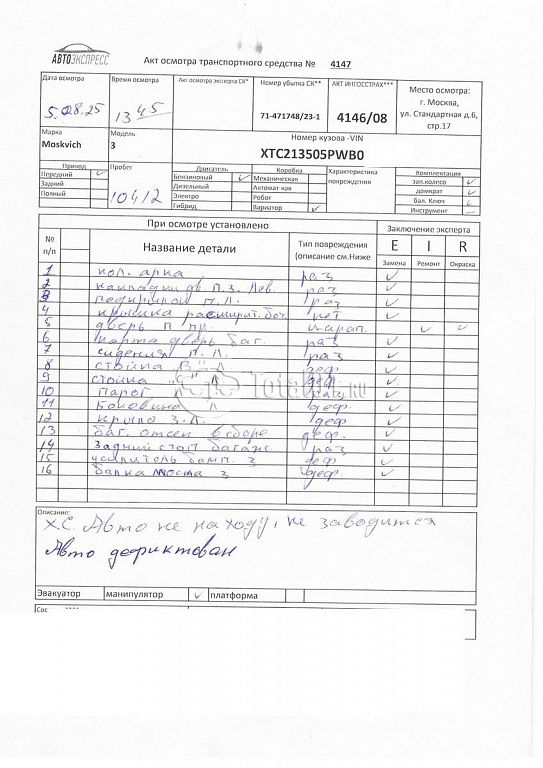 АВТОЭКСПРЕСС
Акт осмотра транспортного средства № 4147
Дата осмотра
5.08.25
Время осмотра
13 45
Акт осмотра эксперта СК*
Номер убытка СК**
71-471748/23-1
АКТ ИНГОССТРАХ***
4146/08
Место осмотра:
г. Москва,
ул. Стандартная д.6,
стр.17
Марка
Moskvich
Модель
3
Номер кузова -VIN
XTC213505PWB0
Привод
Передний ✓
Задний
Полный
Пробег
10412
Двигатель
Бензиновый ✓
Дизельный
Электро
Гибрид
Коробка
Механическая
Автомат-кая
Робот
Вариатор ✓
Характеристика
повреждения
Комплектация
зап.колесо ✓
домкрат ✓
бал. Ключ ✓
Инструмент
При осмотре установлено
Заключение эксперта
№
п/п
Название детали
Тип повреждения
(описание см.Ниже
E I R
Замена Ремонт Окраска
1 кол. арка раз ✓
2 накладки дв. П.З. Лев. раз ✓
3 подкрылок П.Л. раз ✓
4 крышка расширит. боч. нет ✓
5 дверь П пр. царап. ✓ ✓
6 карта дверь баг. раз ✓
7 сидения П.Л. раз ✓
8 стойка "В" деф ✓
9 стойка "С" Л деф. ✓
10 Порог Л раз ✓
11 Боковина Л деф. ✓
12 крыло З.Л. деф ✓
13 баг. отсек в сборе деф. ✓
14 Задний стоп багажн. раз ✓
15 усилитель бамп. З деф ✓
16 балка моста З деф ✓
Totalcar.ru
Описание:
Х.С. Авто не на ходу, не заводится
Авто дефиктован
Эвакуатор манипулятор ✓ платформа